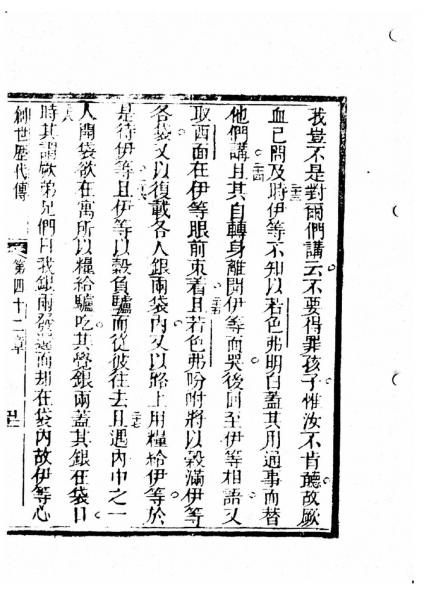 我豈不是對爾們講云不要得罪孩子惟汝不肯聽故厥
血已問及時伊等不知以若色弗明白蓋其用通事而替
他們講且其自轉身離開伊等而哭後回至伊等相語又
取西面在伊等眼前束着且若色弗吩咐將以穀滿伊等
各袋又以復載各人銀兩袋內又以路上用糧給伊等於
是待伊等且伊等以穀負驢而從彼往去且遇內中之一
人開袋欲在寓所以糧給驢吃其覺銀兩蓋其銀在袋口
時其謂厥弟兄們曰我銀兩發還而却在袋內故伊等心
創世歷代傳 第四十二章